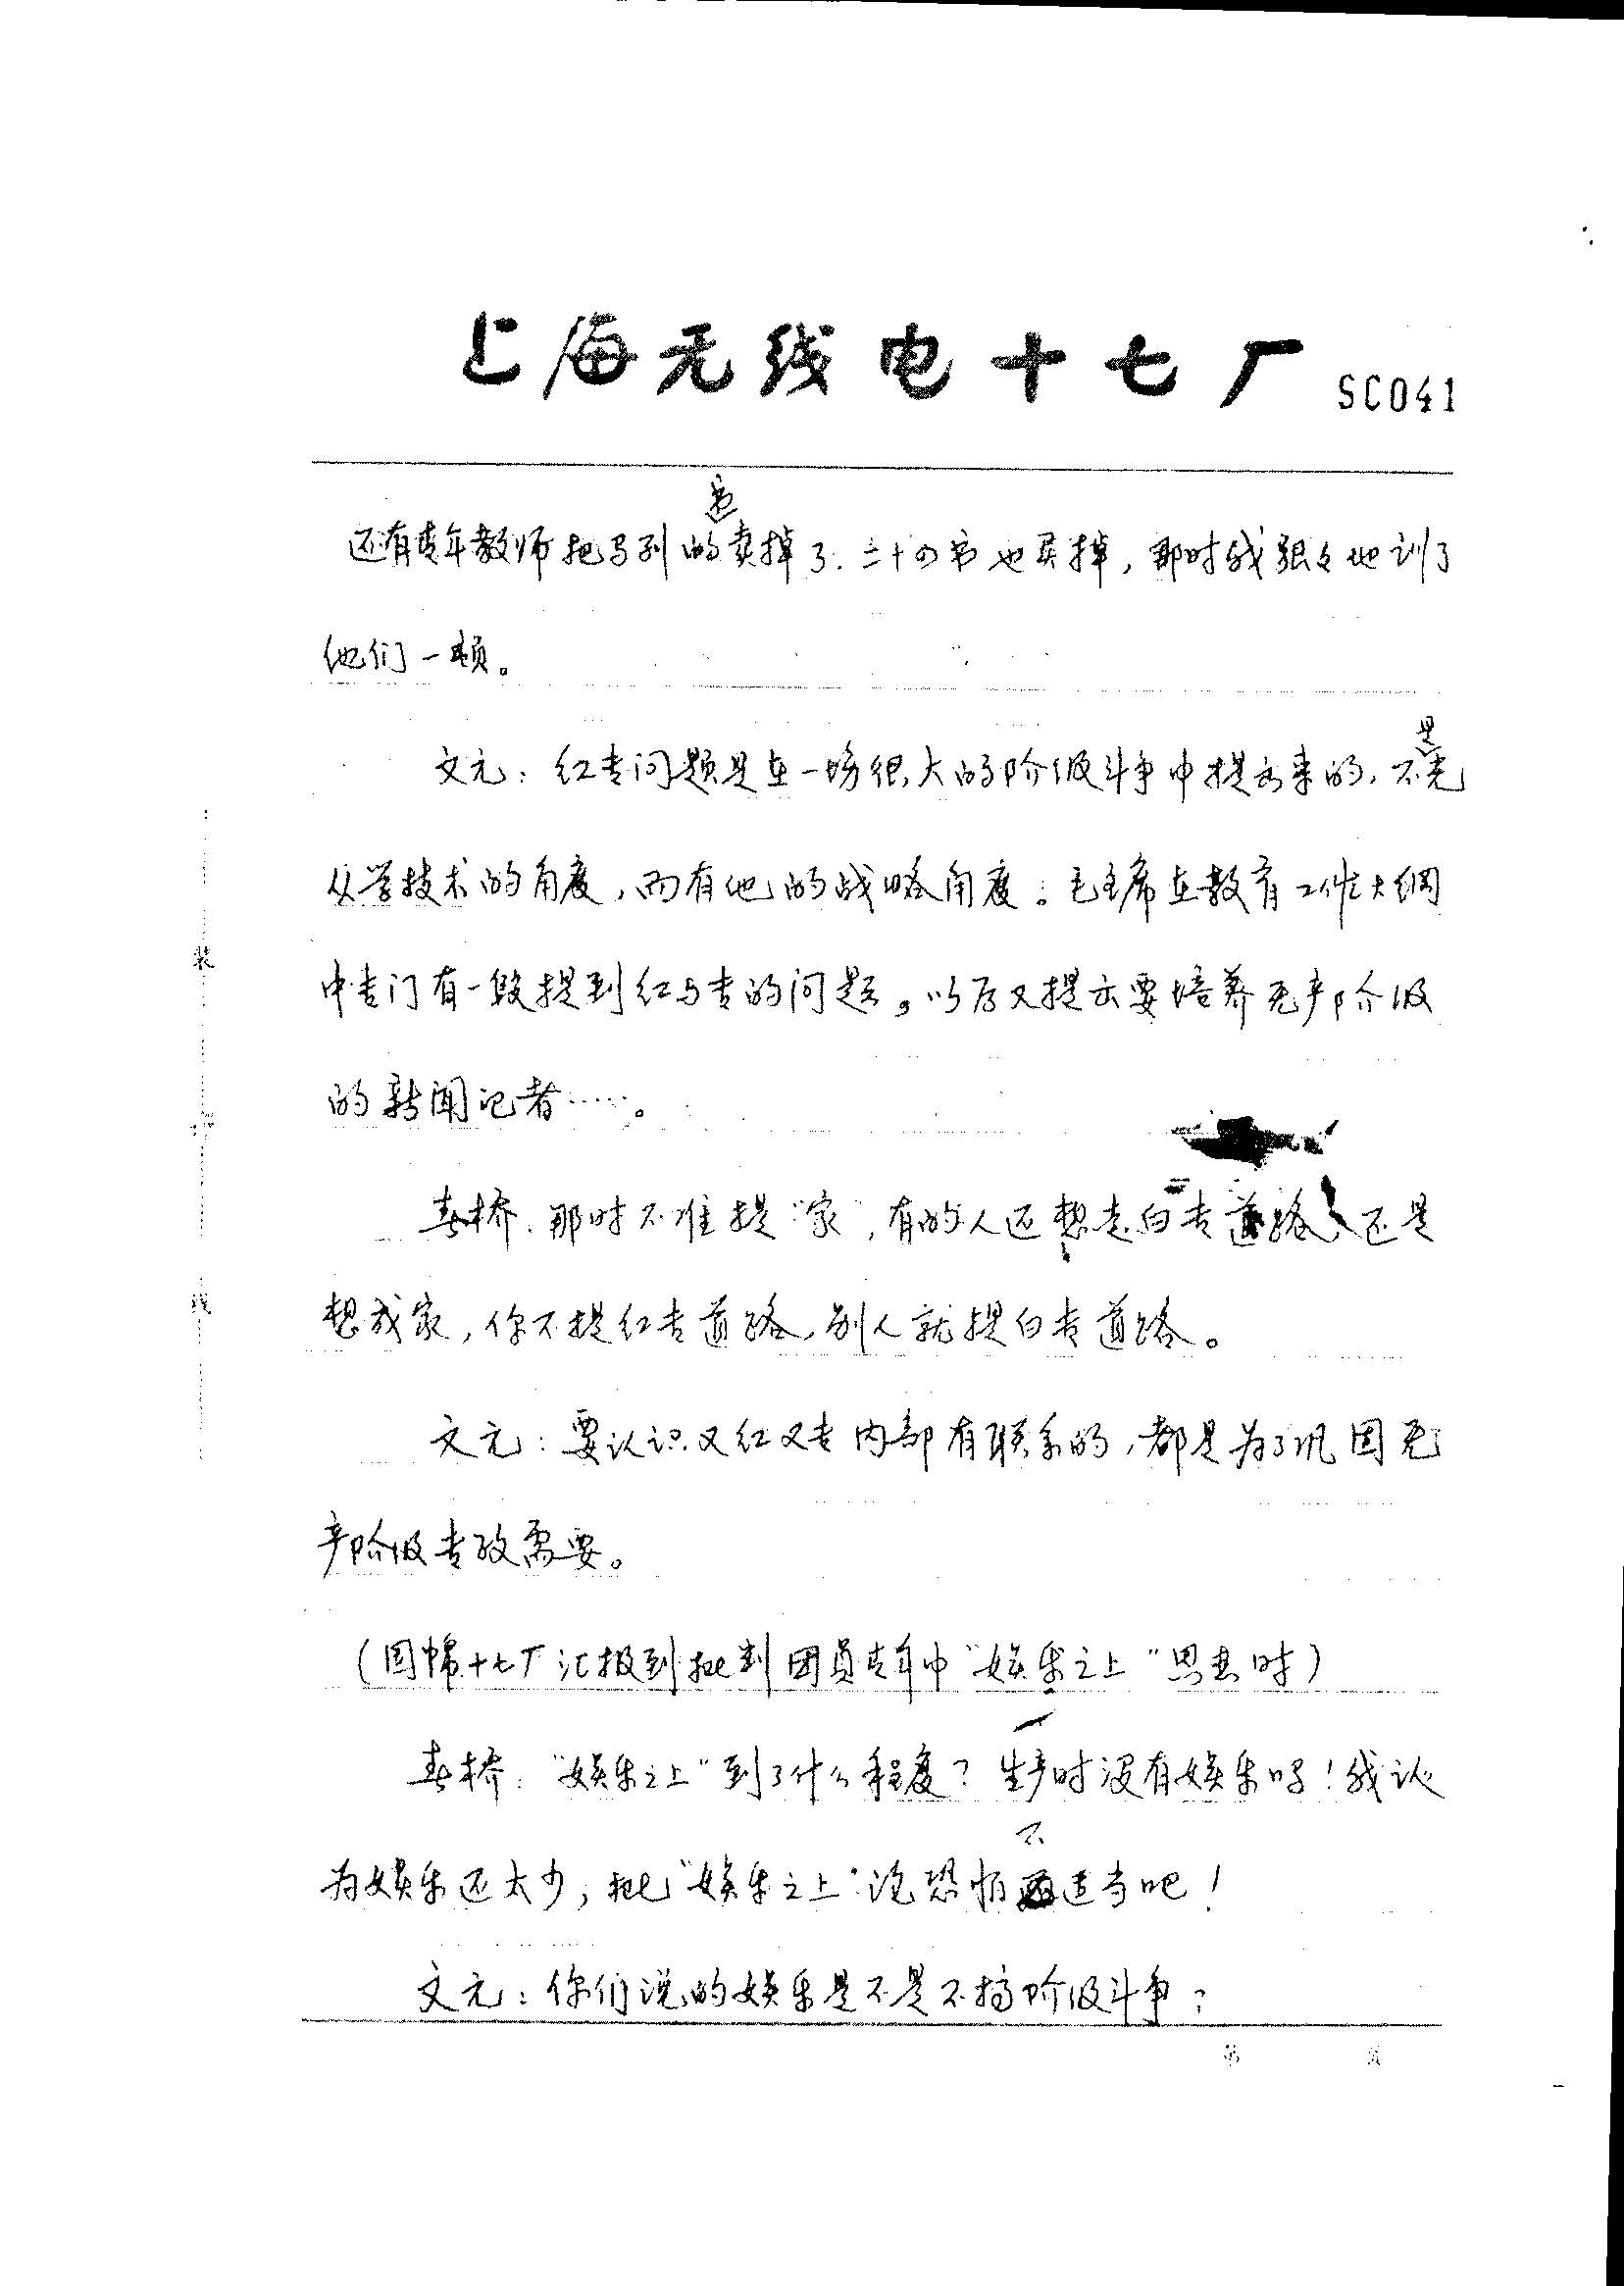 上海无线电十七厂 SC041
还有青年教师把马列的书卖掉了.二十四书也卖掉,那时我狠々地训了
他们一顿。
文元:红专问题是在一场很大的阶级斗争中提出来的,不是光
从学技术的角度,而有他的战略角度。毛主席在教育工作大纲
中专门有一段提到红与专的问题。以后又提出要培养无产阶级
的新闻记者……。
春桥:那时不准提“家”,有的人还想走白专道路,还是
想成家,你不提红专道路,别人就提白专道路。
文元:要认识又红又专内部有联系的,都是为了巩固无
产阶级专政需要。
(国棉十七厂汇报到批判团员青年中“娱乐之上”思想时)
春桥:“娱乐之上”到了什么程度?生产时没有娱乐吗!我认
为娱乐还太少,批“娱乐之上”论恐怕不适当吧!
文元:你们说的娱乐是不是不搞阶级斗争?
装
订
线
第 页